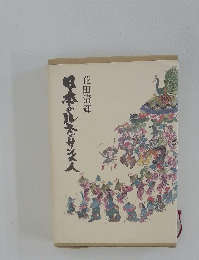 花田清輝
日本のルネッサンス人